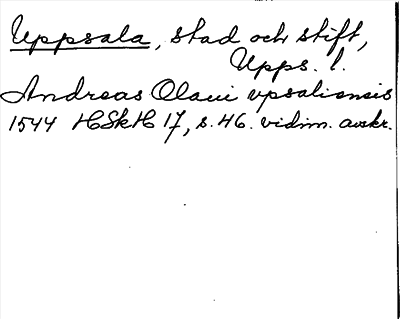 Uppsala, stad och stift,
Upps. l.
Andreas Olaui vpsaliensis
1544 HSkH 17, s. 46. vidim. avskr.